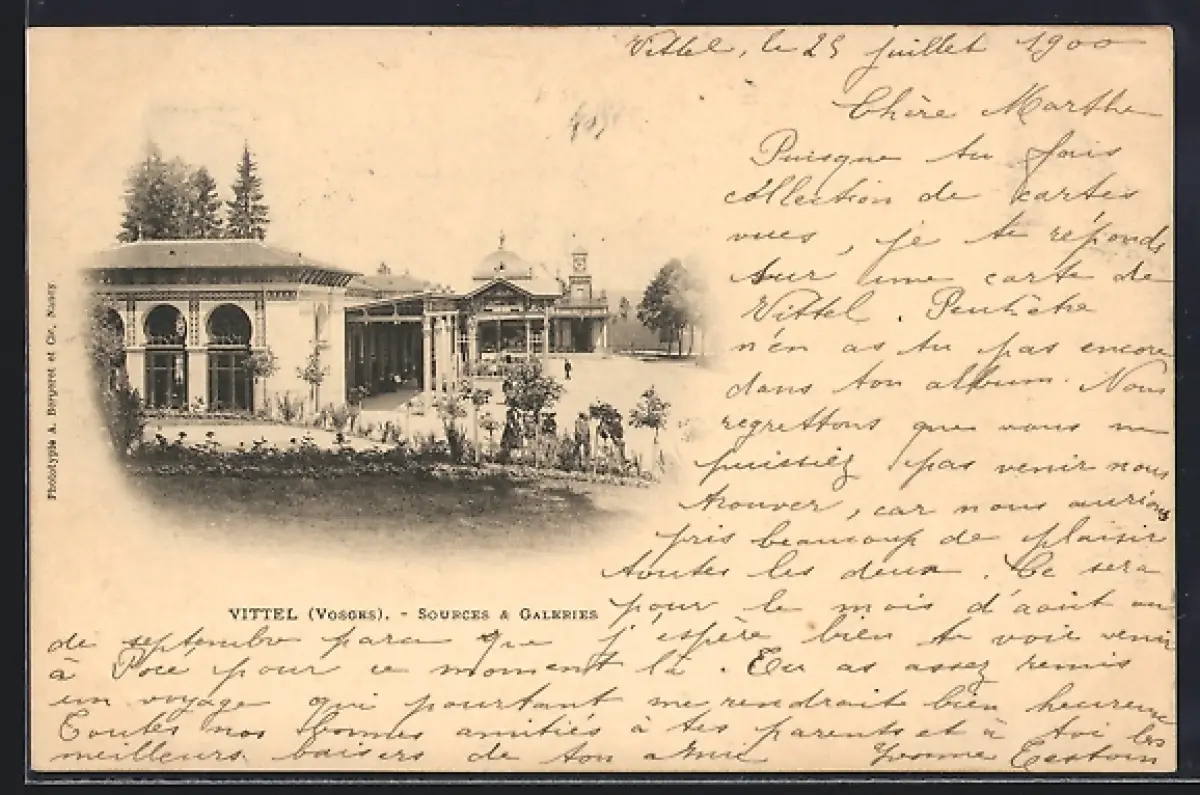 Vittel, le 25 juillet 1900
Chère Marthe
Puisque tu fais
collection de cartes
vues, je te réponds
sur une carte de
Vittel. Peut-être
n'en as tu pas encore
dans ton album. Nous
regrettons que vous ne
puissiez pas venir nous
trouver, car nous aurions
pris beaucoup de plaisir
toutes les deux. Ce sera
pour le mois d'août ou
de septembre parce que j'espère bien te voir venir
à Pocé pour ce moment là. Tu as assez remis
un voyage qui pourtant me rendrait bien heureuse
Toutes nos bonnes amitiés à tes parents et à toi les
meilleurs baisers de ton amie Yvonne
VITTEL (VOSGES). - SOURCES & GALERIES
Phototypie A. Bergeret et Cie, Nancy